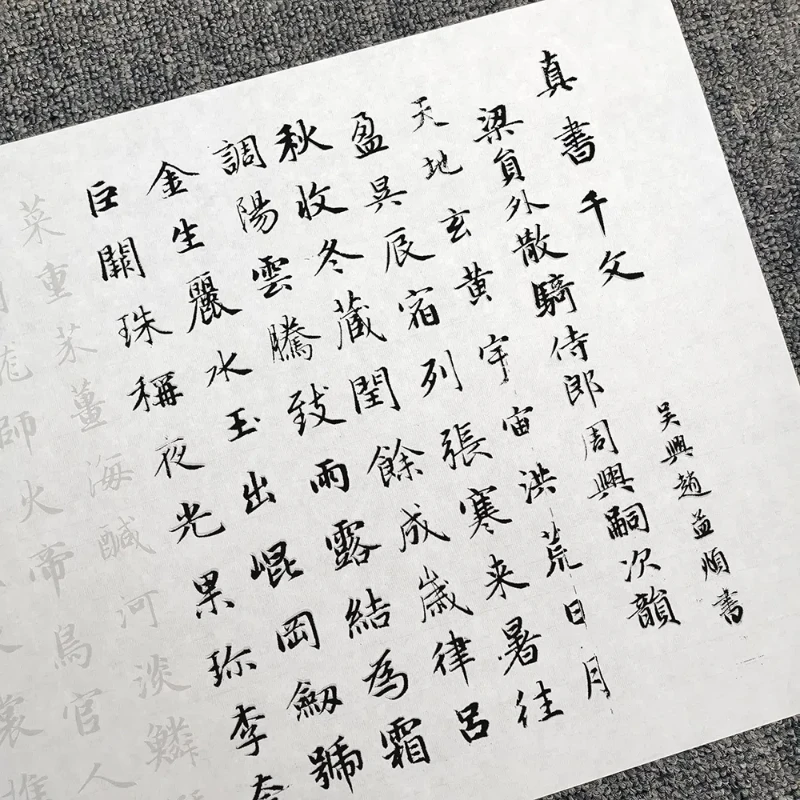 真書千文 吴興趙孟頫書
梁員外散騎侍郎周興嗣次韻
天地玄黄宇宙洪荒日月
盈昃辰宿列張寒来暑往
秋收冬藏閏餘成歲律呂
調陽雲騰致雨露結為霜
金生麗水玉出崐岡劔號
巨闕珠稱夜光果珎李柰
菜重芥薑海鹹河淡鱗
龍師火帝鳥官人
裳推